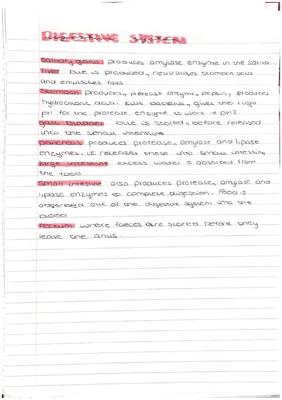 DIGESTIVE SYSTEM
Salivary gland: produces amylase enzyme in the saliva
liver: bile is produced, neutralises stomach acid
and emulsifies fats
Stomach: produces, protease enzyme, pepsin, produces
hydrochloric acid: kills bacteria, gives the right
pH for the protease enzyme to work
gall bladder: bile is stored, before released
into the small intestine
pancreas: produces protease, amylase and lipase
enzymes. It releases these into small intestine
large intestine: excess water is absorbed from
the food
Small intestine: also produces protease, amylase and
lipase enzymes to complete digestion. Food is
absorbed out of the digestive system into the
blood
rectum: where faeces are stored before they
leave the anus